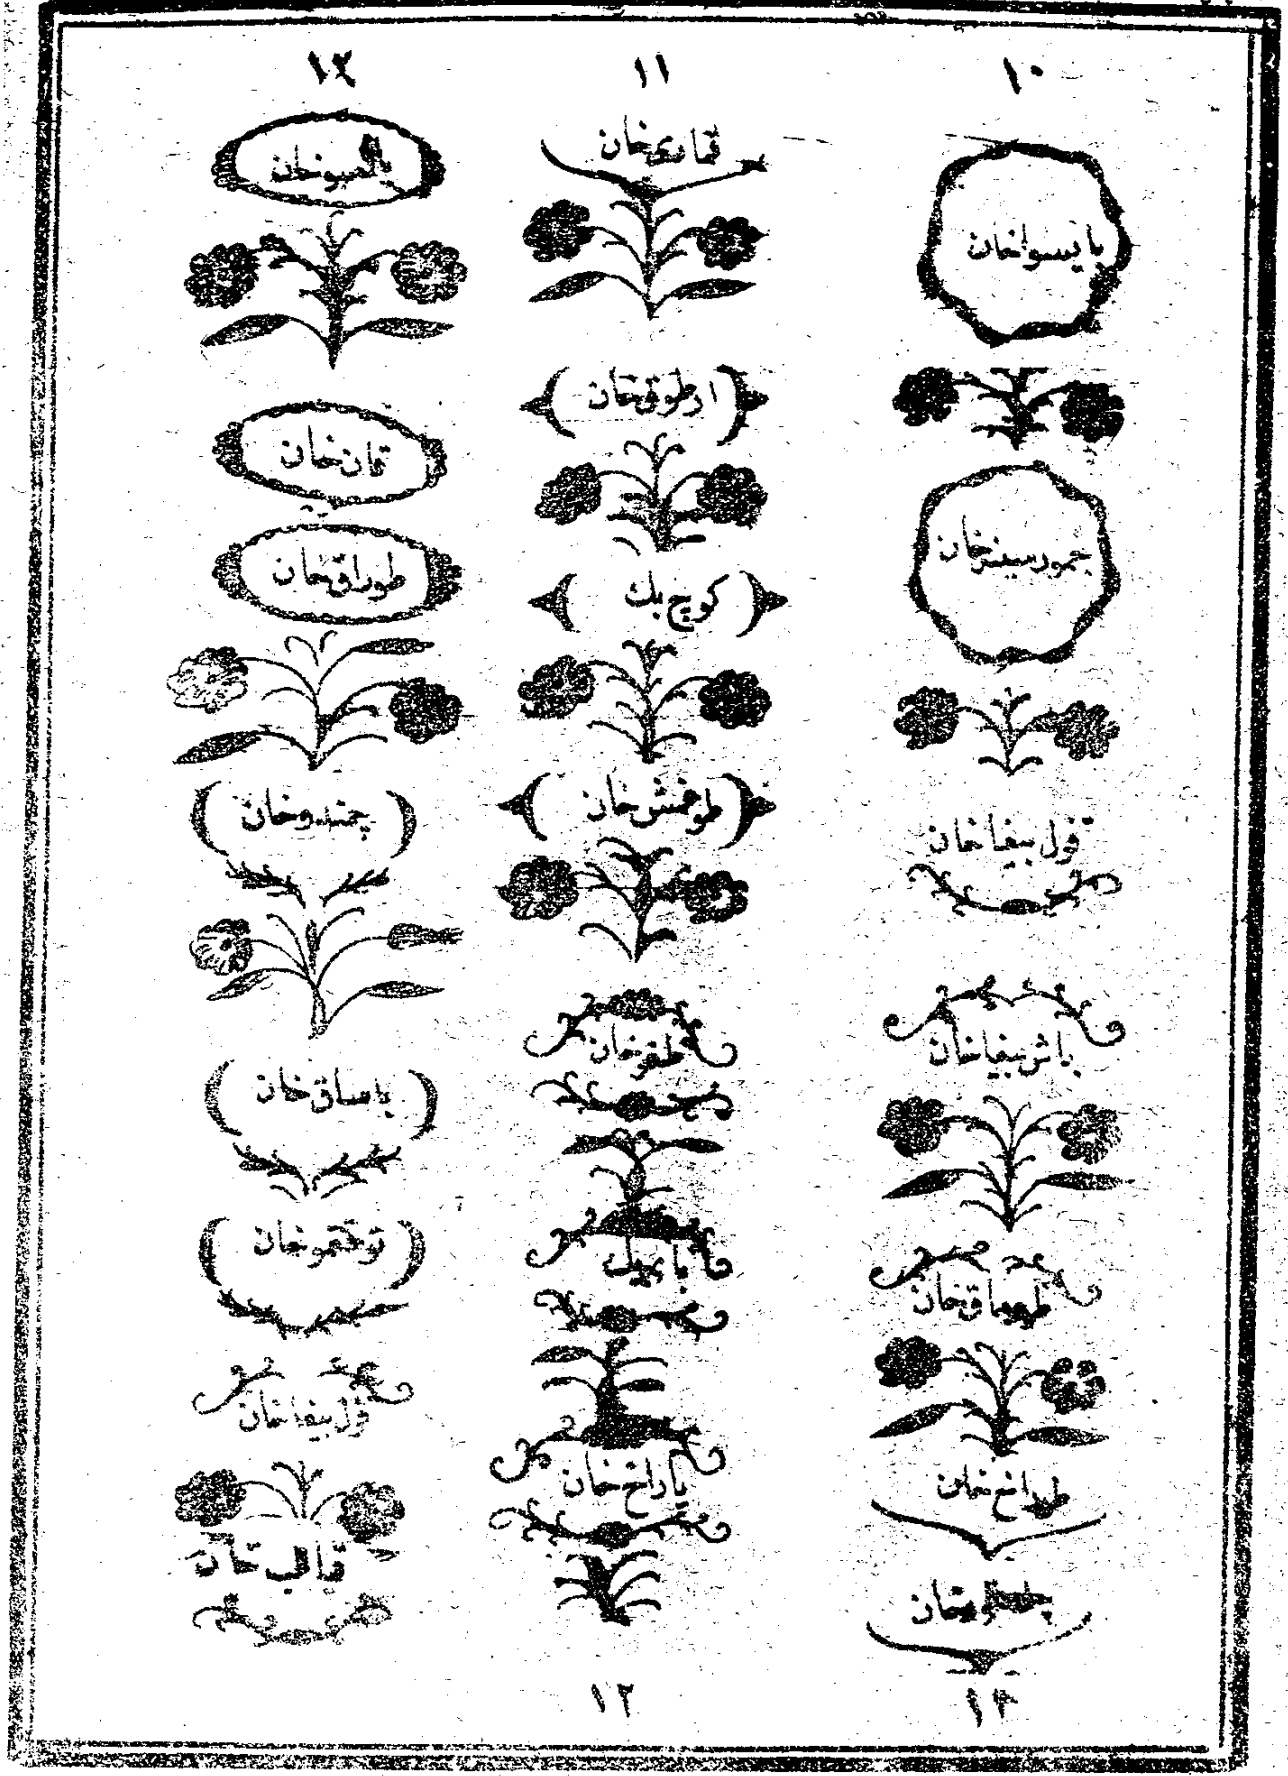 ١٠
بايسواخان
جمورسيزخان
قول بيغا خان
باش بيغا خان
طوماق خان
طراخ خان
١١
قماری خان
ارطوق خان
کوچ بك
طوخمش خان
ظفر خان
بای بك
باراخ خان
١٢
١٣
بايسوخان
تمان خان
طوراق خان
چمندوخان
باساق خان
توختموخان
قول بيغا خان
قالب خان